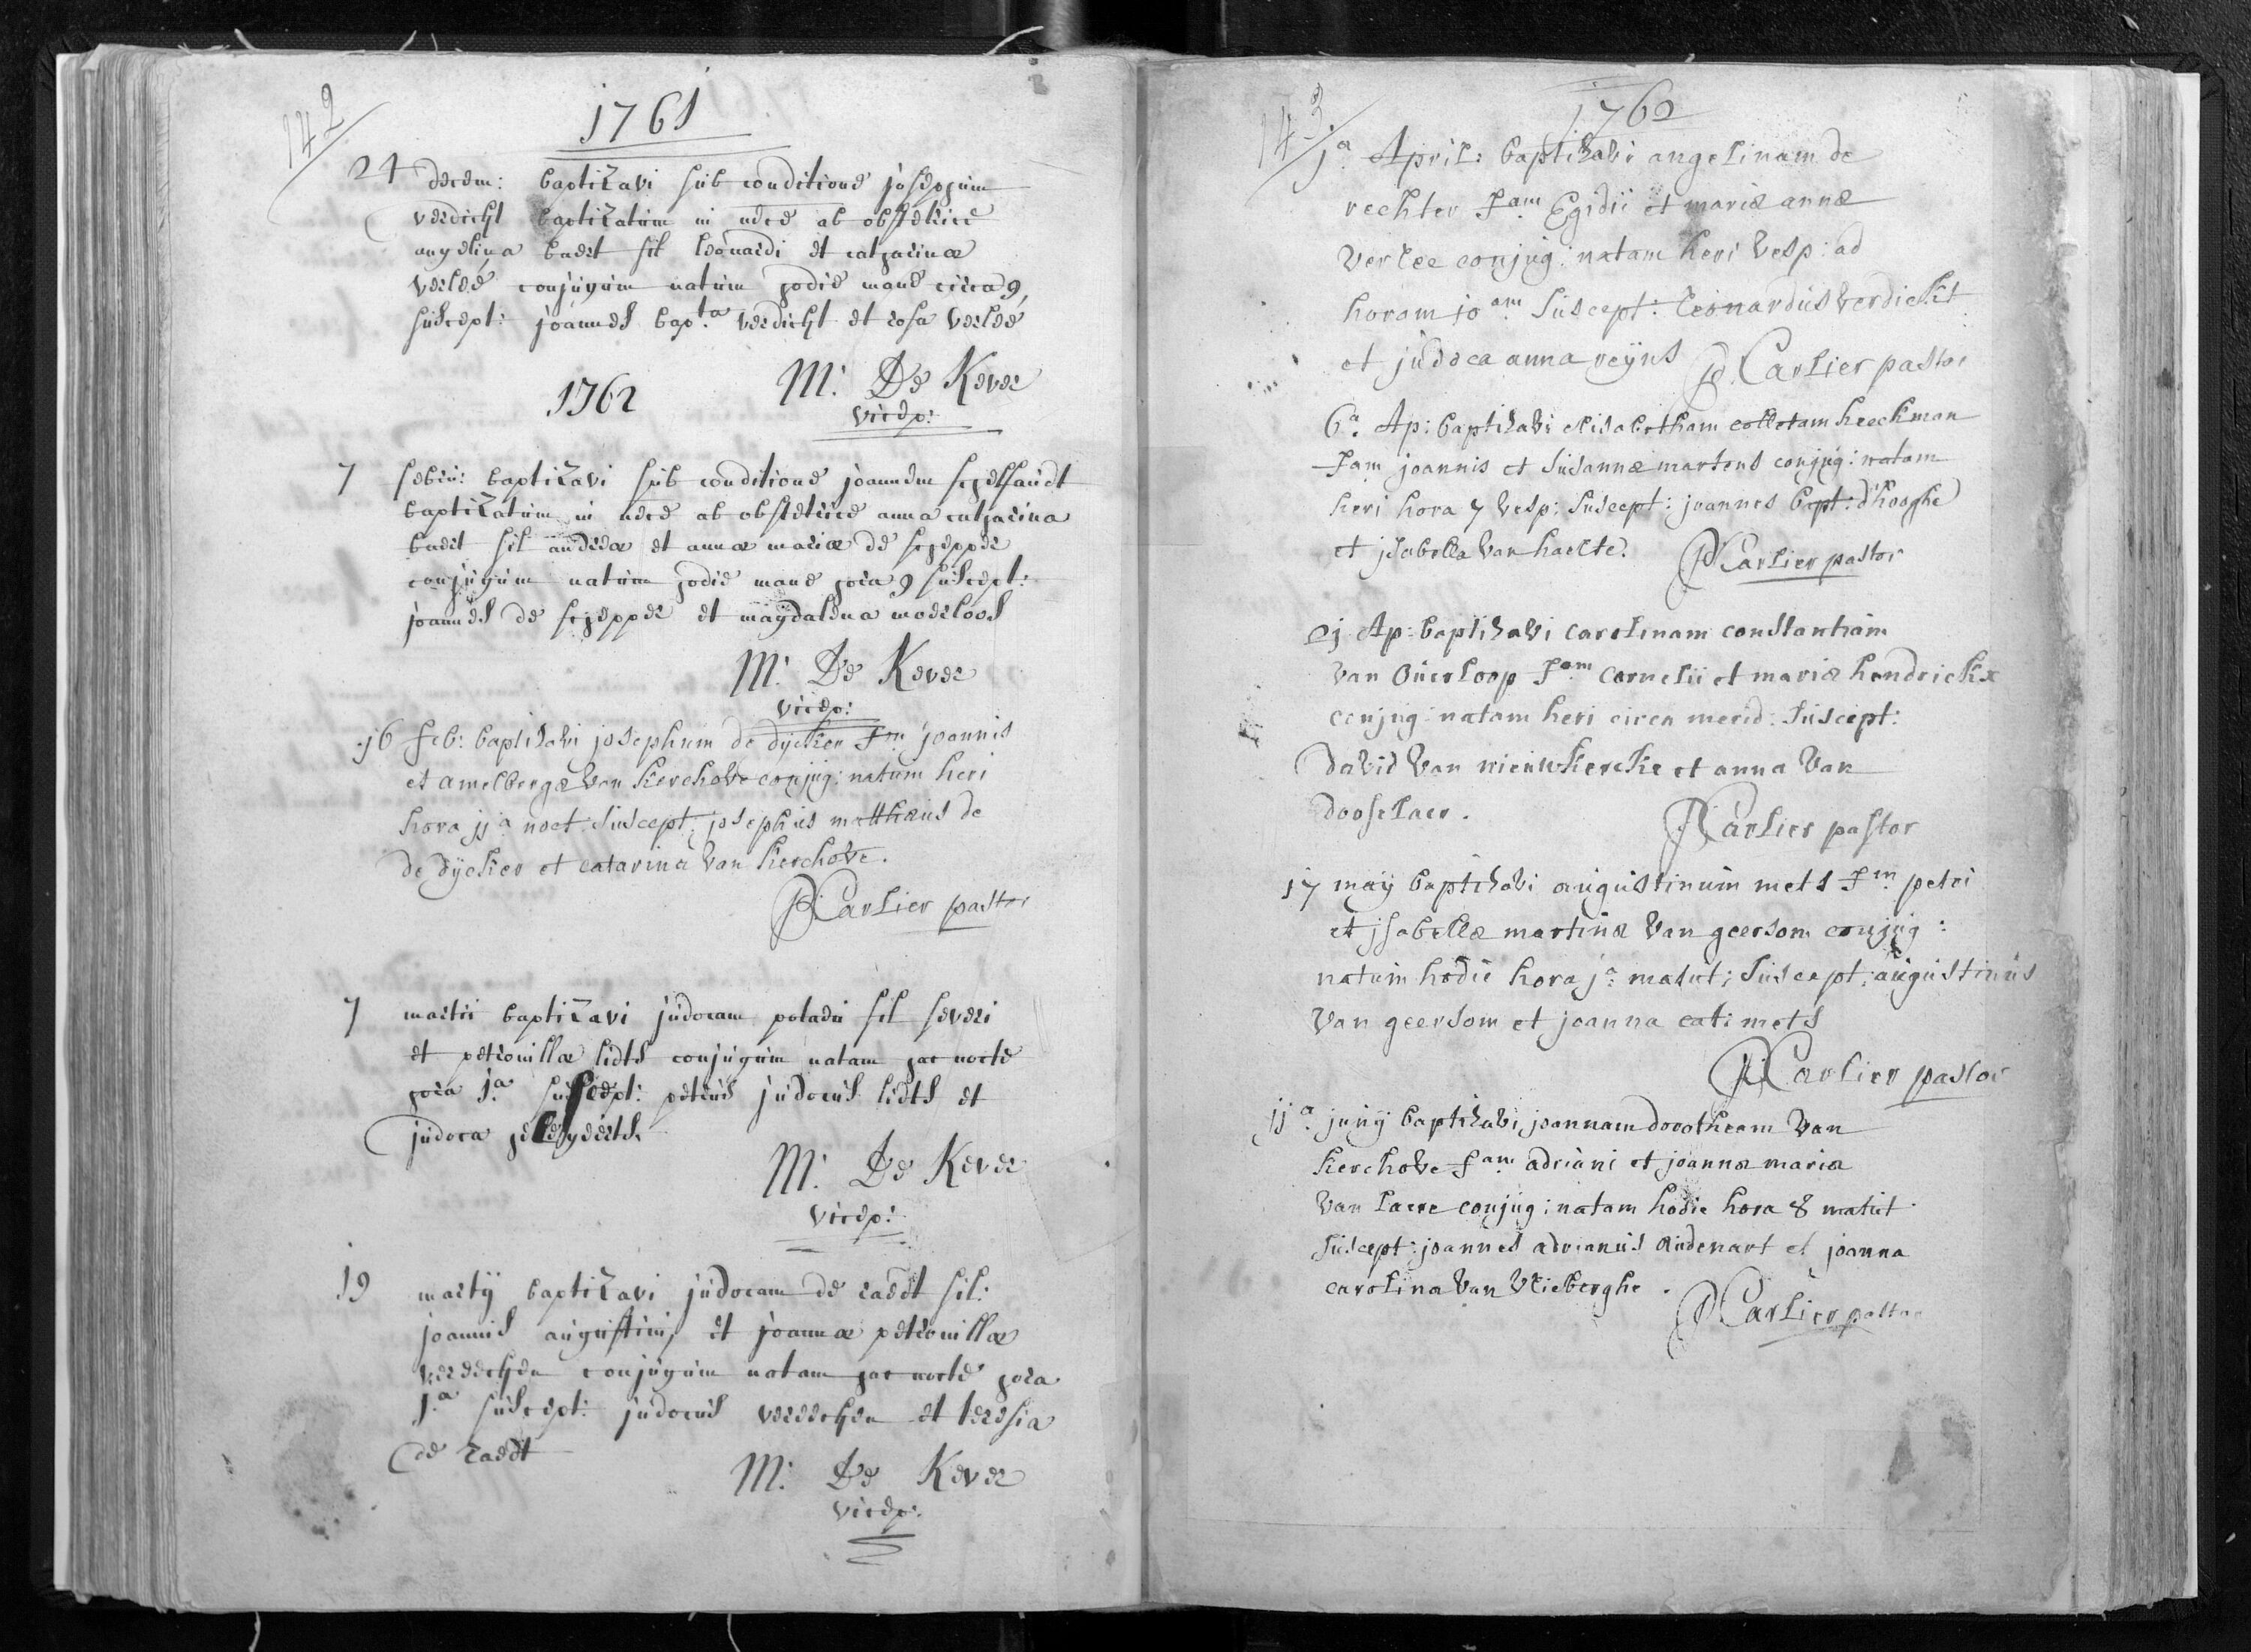 142
1761
24 decem: baptizavi sub conditione josephum
verdicht baptizatum in nece ab obstetrice
angelina baert fil leonardi et catharinæ
verleé conjugum natum hodie mane circa 9
suscept: joannes bap.ta verdicht et rosa verleé
M: De Kever
vicep:
1762
7 febru: baptizavi sub conditione joannem schelfaudt
baptizatum in nece ab obstetrice anna catharina
baert fil andreæ et annæ mariæ de schepper
conjugum natum hodie mane hora 9 suscept:
joannes de schepper et magdalena moerloos
M: De Kever
vicep:
16 feb: baptisavi josephum de dycker f.m joannis
et amelbergæ van kerchove conjug: natum heri
hora jj.a noct. suscept: josephus matthæus de
de dycker et catarina van kerchove.
Carlier pastor
7 martii baptizavi judocam poladu fil severi
et petronillæ lidts conjugum natam hac nocte
hora j.a suscept: petrus judocus lidts et
judoca
M: De Kever
vicep:
19 martij baptizavi judocam de raedt fil:
joannis augustini et joannæ petronillæ
vereecken conjugum natam hac nocte hora
j.a suscept: judocus vereecken et teresia
de raedt
M: De Kever
vicep:
143
1762
j.a April: baptisavi angelinam de
rechter f.am Egidii et mariæ annæ
verlee conjug: natam heri vesp: ad
horam jo.am suscept: Leonardus verdickt
et judoca anna reÿns Carlier pastor
6.a Ap: baptisavi elisabetham colletam heeckman
fam joannis et susannæ martens conjug: natam
heri hora 7 vesp: suscept: joannes bapt: d'hooghe
et jsabella van haelte. Carlier pastor
2j Ap: baptisavi carolinam constantiam
van Overloop f.am cornelii et mariæ hendrickx
conjug: natam heri circa merid: suscept:
david van nieuwkercke et anna van
dooselaer.
Carlier pastor
17 may baptisavi augustinum mets f.m petri
et jsabellæ martinæ van geersom conjug:
natum hodie hora j.a matut: suscept: augustinus
van geersom et joanna cat: mets
Carlier pastor
jj.a junÿ baptisavi joannam dorotheam van
kerchove f.am adriani et joannæ mariæ
van laere conjug: natam hodie hora 8 matut
suscept: joannes adrianus audenart et joanna
carolina van vlieberghe.
Carlier pastor